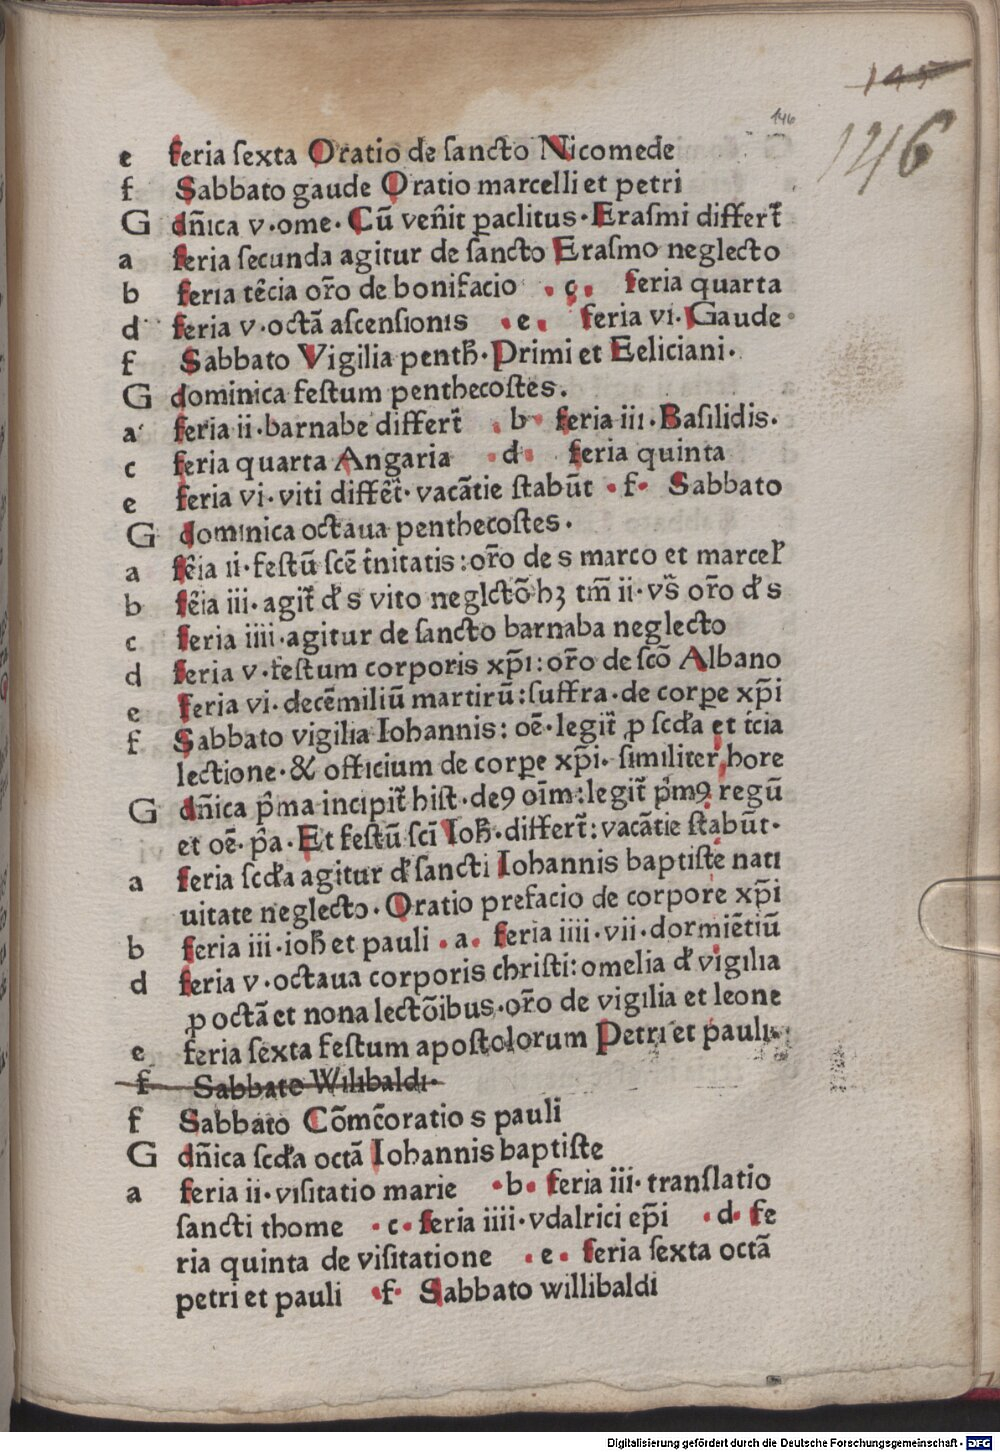 145
146
146
e feria sexta Oratio de sancto Nicomede
f Sabbato gaude Oratio marcelli et petri
G dn̄ica v·ome·Cū ven̄it ꝑaclitus·Erasmi differt᷑
a feria secunda agitur de sancto Erasmo neglecto
b feria tēcia or̄o de bonifacio ·c· feria quarta
d feria v·octā ascensionis ·e· feria vi·Gaude
f Sabbato Vigilia penth̄·Primi et Eeliciani·
G dominica festum penthecostes.
a feria ii·barnabe differt᷑ ·b· feria iii·Basilidis·
c feria quarta Angaria ·d· feria quinta
e feria vi·viti diffēt᷑·vacātie stabūt ·f· Sabbato
G dominica octaua penthecostes·
a fēia ii·festū scē t̄initatis:or̄o de s marco et marcel᷑
b fēia iii·agit᷑ d̕ s vito neglctō hꝫ tm̄ ii·vs̄ or̄o d̕ s
c feria iiii·agitur de sancto barnaba neglecto
d feria v·festum corporis xp̄i:or̄o de scō Albano
e feria vi·decēmiliū martirū:suffra·de corꝑe xp̄i
f Sabbato vigilia Iohannis:oē·legit᷑ ꝓ scd̕a et t̄cia
lectione·& officium de corꝑe xp̄i·similiter hore
G dn̄ica p̄ma incipit᷑ hist·deꝯ oīm:legit᷑ p̄mꝯ regū
et oē·p̄a·Et festū scī Ioh̄·differt᷑:vacātie stabūt·
a feria scd̕a agitur d̕ sancti Iohannis baptiste nati
uitate neglecto·Oratio prefacio de corpore xp̄i
b feria iii·ioh̄ et pauli ·a· feria iiii·vii·dormiētiū
d feria v·octaua corporis christi:omelia d̕ vigilia
ꝓ octā et nona lectōibus·or̄o de vigilia et leone
e feria sexta festum apostolorum Petri et pauli·
f Sabbate Wilibaldi·
f Sabbato Cōmēoratio s pauli
G dn̄ica scd̕a octā Iohannis baptiste
a feria ii·visitatio marie ·b· feria iii·translatio
sancti thome ·c· feria iiii·vdalrici ep̄i ·d· fe
ria quinta de visitatione ·e· feria sexta octā
petri et pauli ·f· Sabbato willibaldi
Digitalisierung gefördert durch die Deutsche Forschungsgemeinschaft - DFG